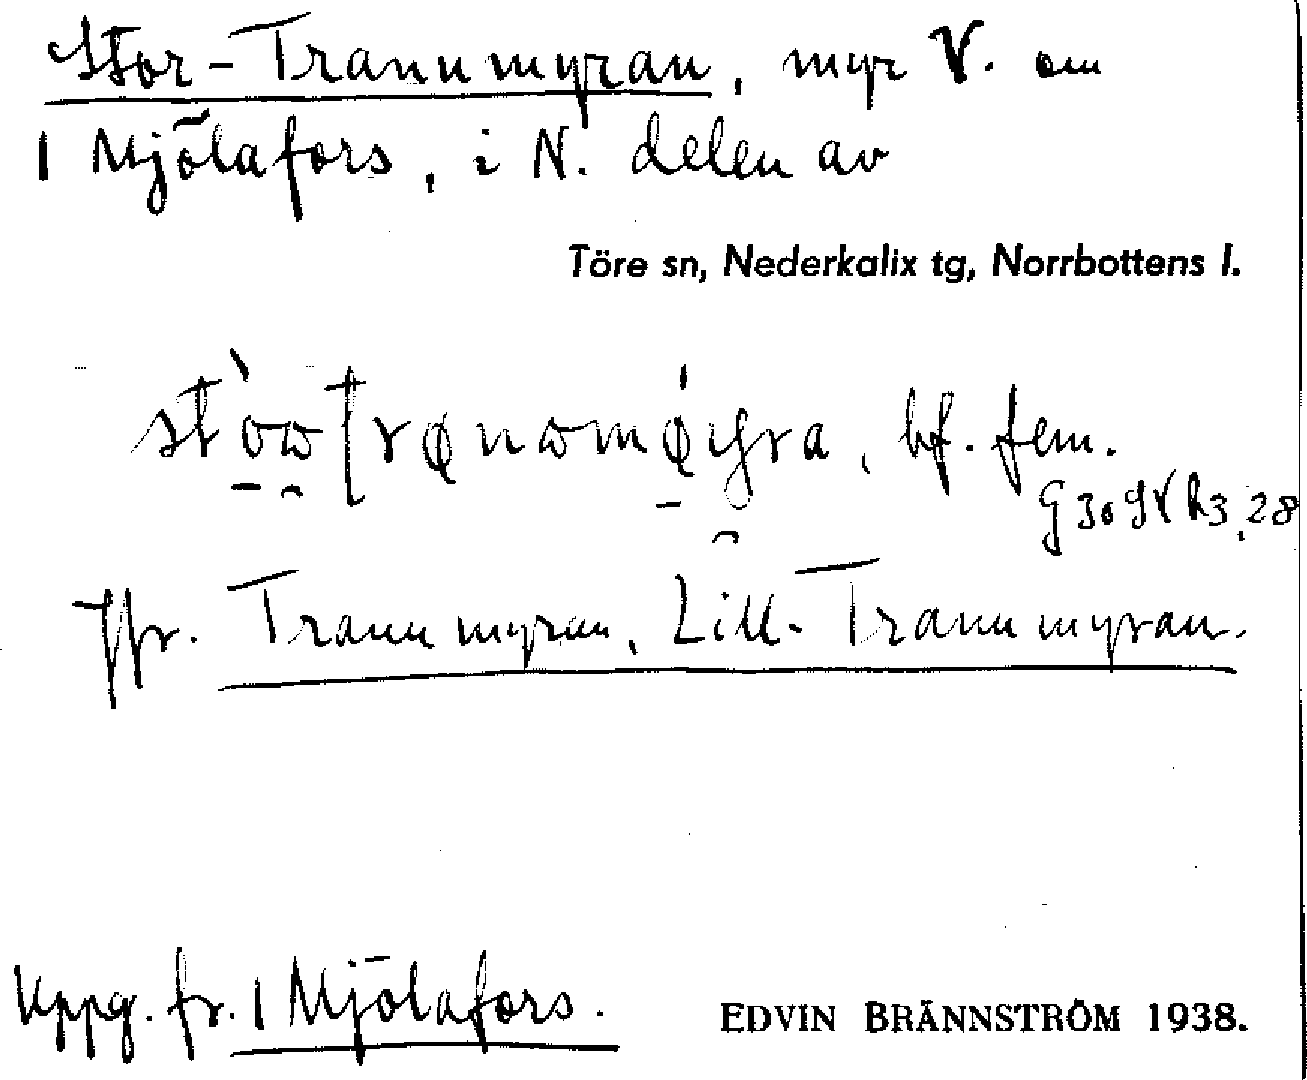 Stor-Tranumyran, myr V. om
1 Mjölafors, i N. delen av
Töre sn, Nederkalix tg, Norrbottens l.
bf. fem.
Jfr. Tranumyran, Lill-Tranumyran.
Uppg. fr. 1 Mjölafors.
EDVIN BRÄNNSTRÖM 1938.